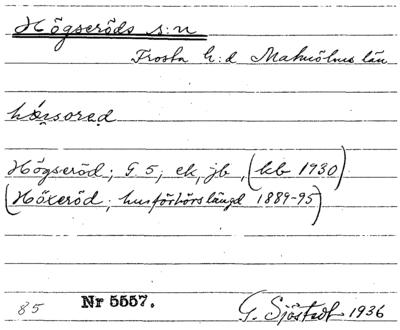 Högseröds s:n
Frosta h:d Malmöhus län
hǿ̣rsorad
Högseröd; G 5; ek, jb, (kb 1930)
(Höxeröd; husförhörslängd 1889-95)
85 Nr 5557. G. Sjöstedt 1936